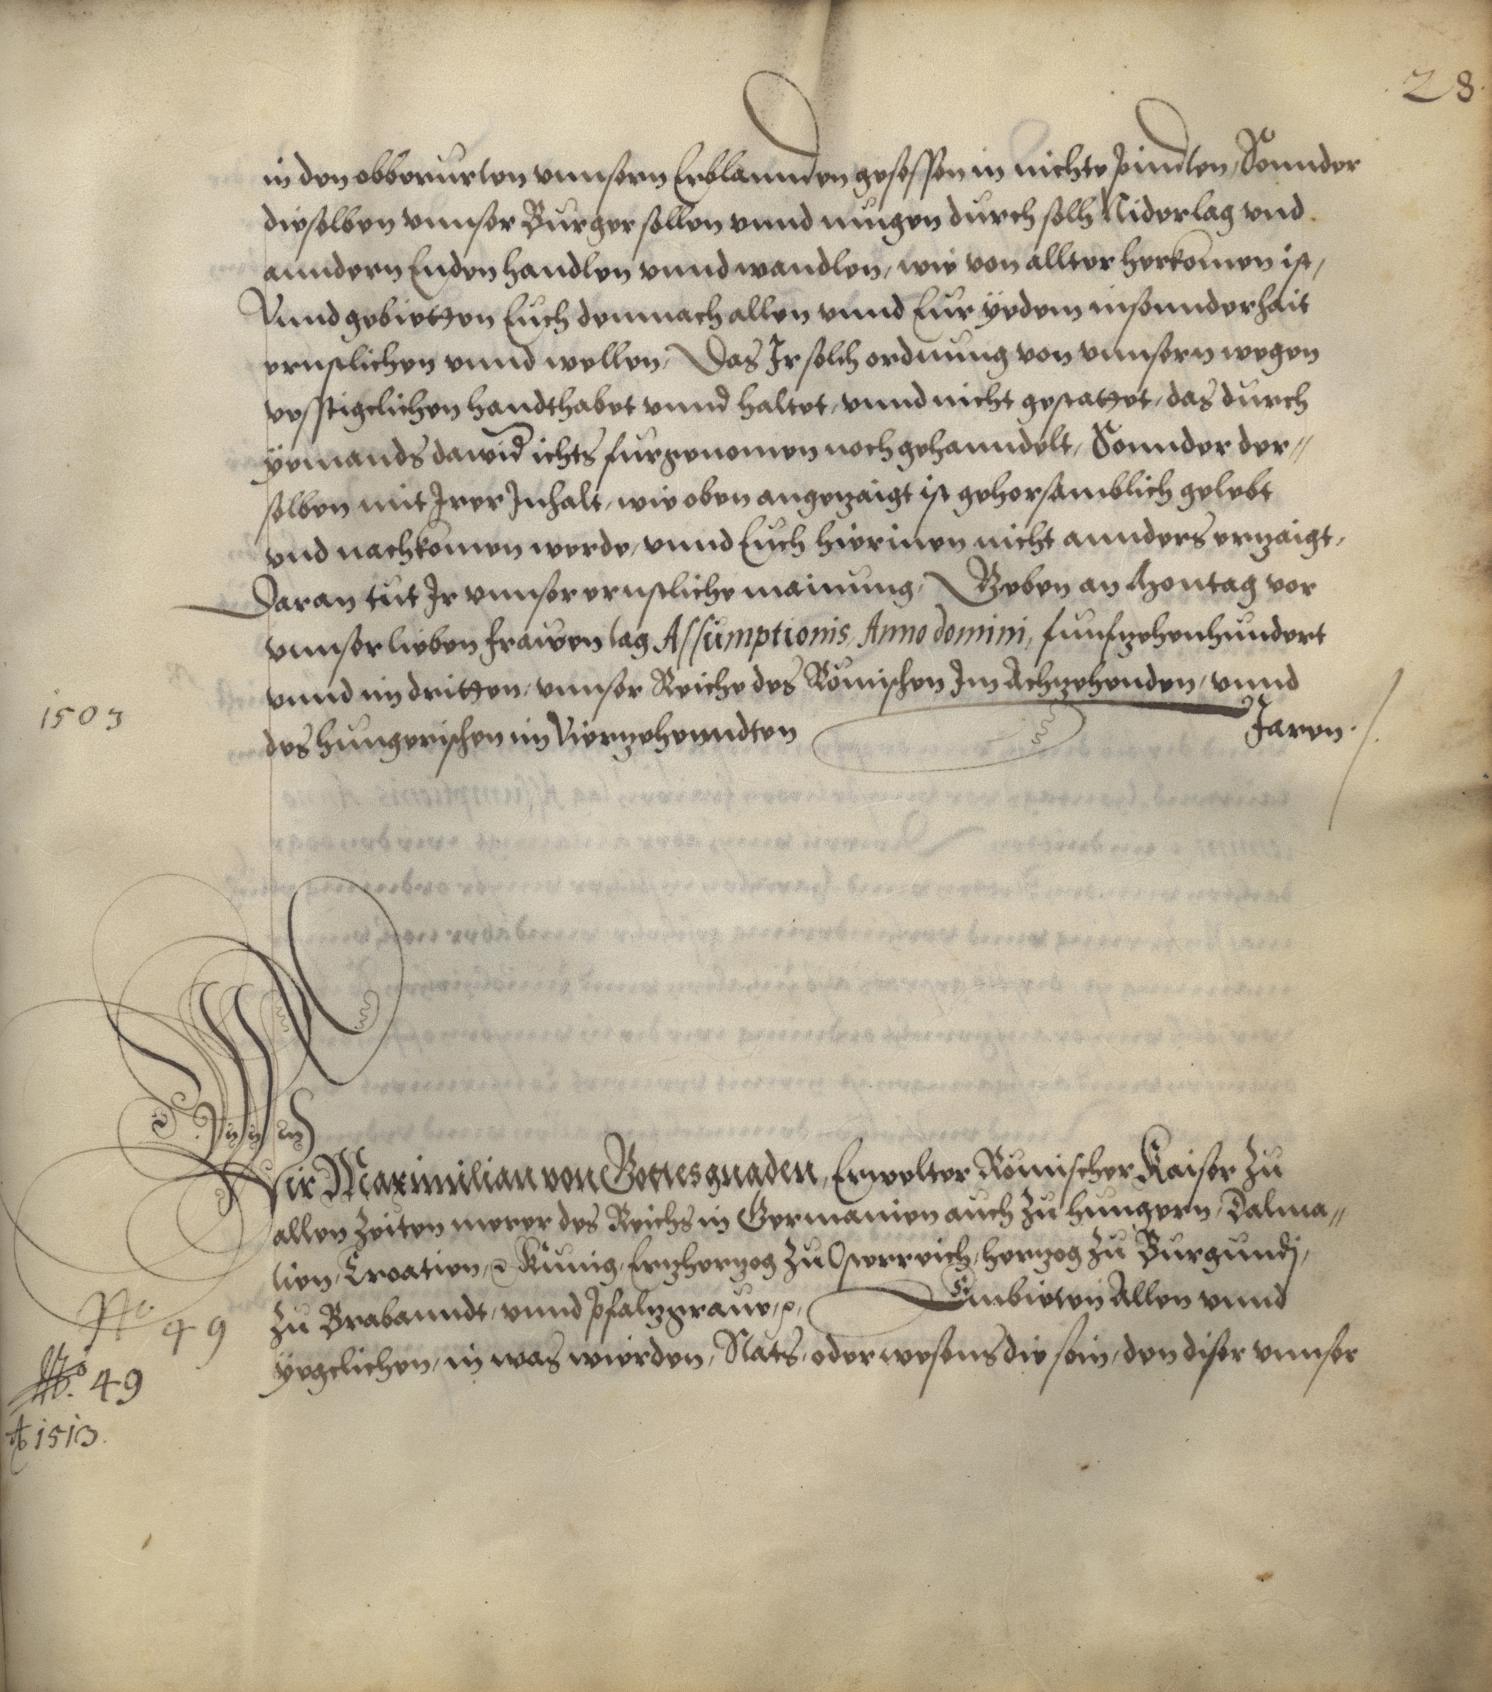 28.
in den obberurten vnnsern Erblannden gesessen in nichte pinnden, Sonnder
dieselben vnnser Burger sollen vnnd mugen durch solh Niderlag vnd
anndern Enden handlen vnnd wandlen, wie von allter herkomen ist,
Vnnd gebietten Euch demnach allen vnnd Eur yedem innsonnderhait
ernstlichen vnnd wellen, Das Ir solch ordnung von vnnsern wegen
vesstigclichen handthabet vnnd haltet, vnnd nicht gestattet, das durch
yemands dawid ichts furgenomen noch gehanndelt, Sonnder der„
selben mit Irer Inhalt, wie oben angezaigt ist gehorsamblich gelebt
vnd nachkomen werde, vnnd Euch hierinen nicht annders erzaigt,
Daran tut Ir vnnser ernstliche mainung, Geben an Montag vor
vnnser lieben Frawen tag Assumptionis, Anno domini, funfzehenhundert
vnnd im dritten, vnnser Reiche des Römischen Im Achzehenden, vnnd
1503
des hungerischen im Vierzehenndten Jaren.
Wir Maximilian von Gottes gnaden, Erwelter Römischer Kaiser zu
allen Zeiten merer des Reichs in Germanien auch zu hungern, Dalma„
tien, Croatien, &c Kunig, Erzherzog zu Osterreich, herzog zu Burgundj,
zu Brabanndt, vnnd Pfalzgraue, &c, Embieten Allen vnnd
No. 49
yegclichen, in was wierden, Stats, oder wesens die sein, den diser vnnser
No. 49
Ao 1513.